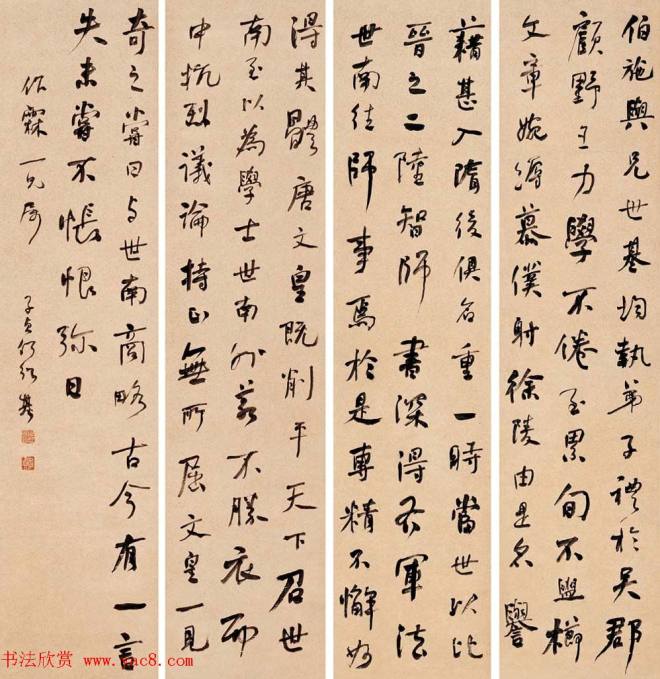 伯施與兄世基均執弟子禮於吳郡
顧野王力學不倦至累旬不盥櫛
文章婉縟慕僕射徐陵由是名譽
藉甚入隋後俱名重一時當世以比
晉之二陸智師書深得右軍法
世南往師事焉於是專精不懈妙
得其體唐文皇既削平天下召世
南至以為學士世南外若不勝衣而
中抗烈議論持正無所屈文皇一見
奇之嘗曰与世南商略古今有一言
失未嘗不悵恨弥日
作霖一兄属
子貞何紹基
书法欣赏 www.yac8.com